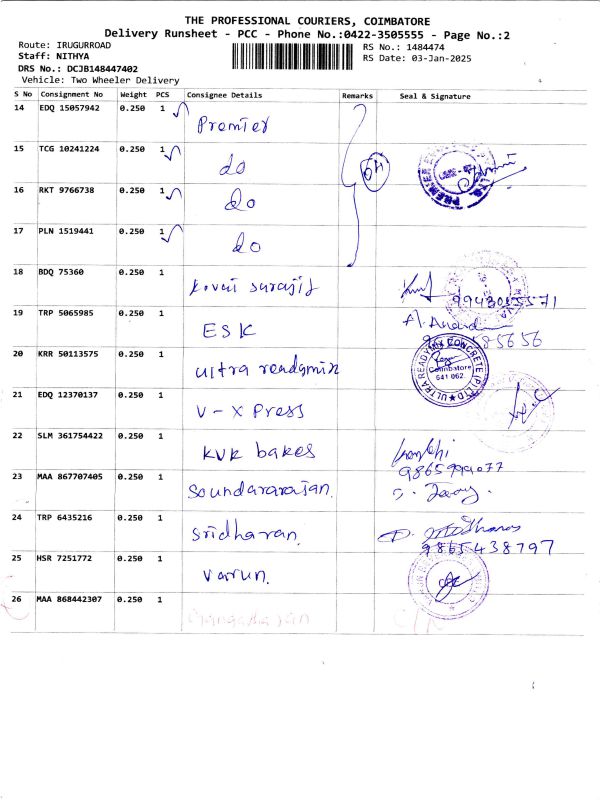 THE PROFESSIONAL COURIERS, COIMBATORE
Delivery Runsheet - PCC - Phone No.:0422-3505555 - Page No.:2
Route: IRUGURROAD RS No.: 1484474
Staff: NITHYA RS Date: 03-Jan-2025
DRS No.: DCJB148447402
Vehicle: Two Wheeler Delivery
S No Consignment No Weight PCS Consignee Details Remarks Seal & Signature
14 EDQ 15057942 0.250 1 Premier
15 TCG 10241224 0.250 1 do
16 RKT 9766738 0.250 1 do
17 PLN 1519441 0.250 1 do
18 BDQ 75360 0.250 1 kovai surajit
19 TRP 5065985 0.250 1 ESK
20 KRR 50113575 0.250 1 ultra readymix
ULTRA READYMIX CONCRETE P LTD
Coimbatore
641 062
21 EDQ 12370137 0.250 1 V-X Press
22 SLM 361754422 0.250 1 KVR bakes
23 MAA 867707405 0.250 1 Soundararajan.
24 TRP 6435216 0.250 1 Sridharan.
9865438797
25 HSR 7251772 0.250 1 Varun.
26 MAA 868442307 0.250 1 Gangadaran